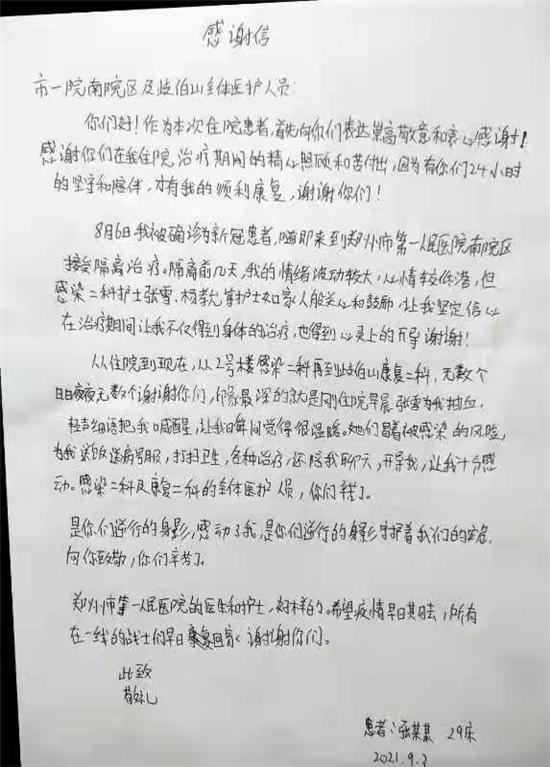 感谢信
市一院南院区及岐伯山全体医护人员:
你们好!作为本次住院患者,首先向你们表达崇高敬意和衷心感谢!
感谢你们在我住院,治疗期间的精心照顾和苦付出,因为有你们24小时
的坚守和陪伴,才有我的顺利康复,谢谢你们!
8月6日我被确诊为新冠患者,随即来到郑州市第一人民医院南院区
接受隔离治疗。隔离前几天,我的情绪波动较大,心情较低落,但
感染二科护士张雪、杨孝允等护士如家人般关心和鼓励,让我坚定信心
在治疗期间让我不仅得到身体的治疗,也得到心灵上的开导谢谢!
从住院到现在,从2号楼感染二科再到岐伯山康复二科,无数个
日日夜夜无数个谢谢你们,印象最深的就是刚住院早晨张雪为我抽血,
轻声细语把我喊醒,让我瞬间觉得很温暖。她们冒着被感染的风险,
为我送饭送病号服,打扫卫生,各种治疗,还陪我聊天,开导我,让我十分感
动。感染二科及康复二科的全体医护人员,你们辛苦了。
是你们逆行的身影,感动了我,是你们逆行的身影守护着我们的安危,
向你致敬,你们辛苦了。
郑州市第一人民医院的医生和护士,好样的。希望疫情早日其去,所有
在一线的战士们早日康复回家 谢谢你们。
此致
敬礼
患者:张某某 29床
2021.9.3